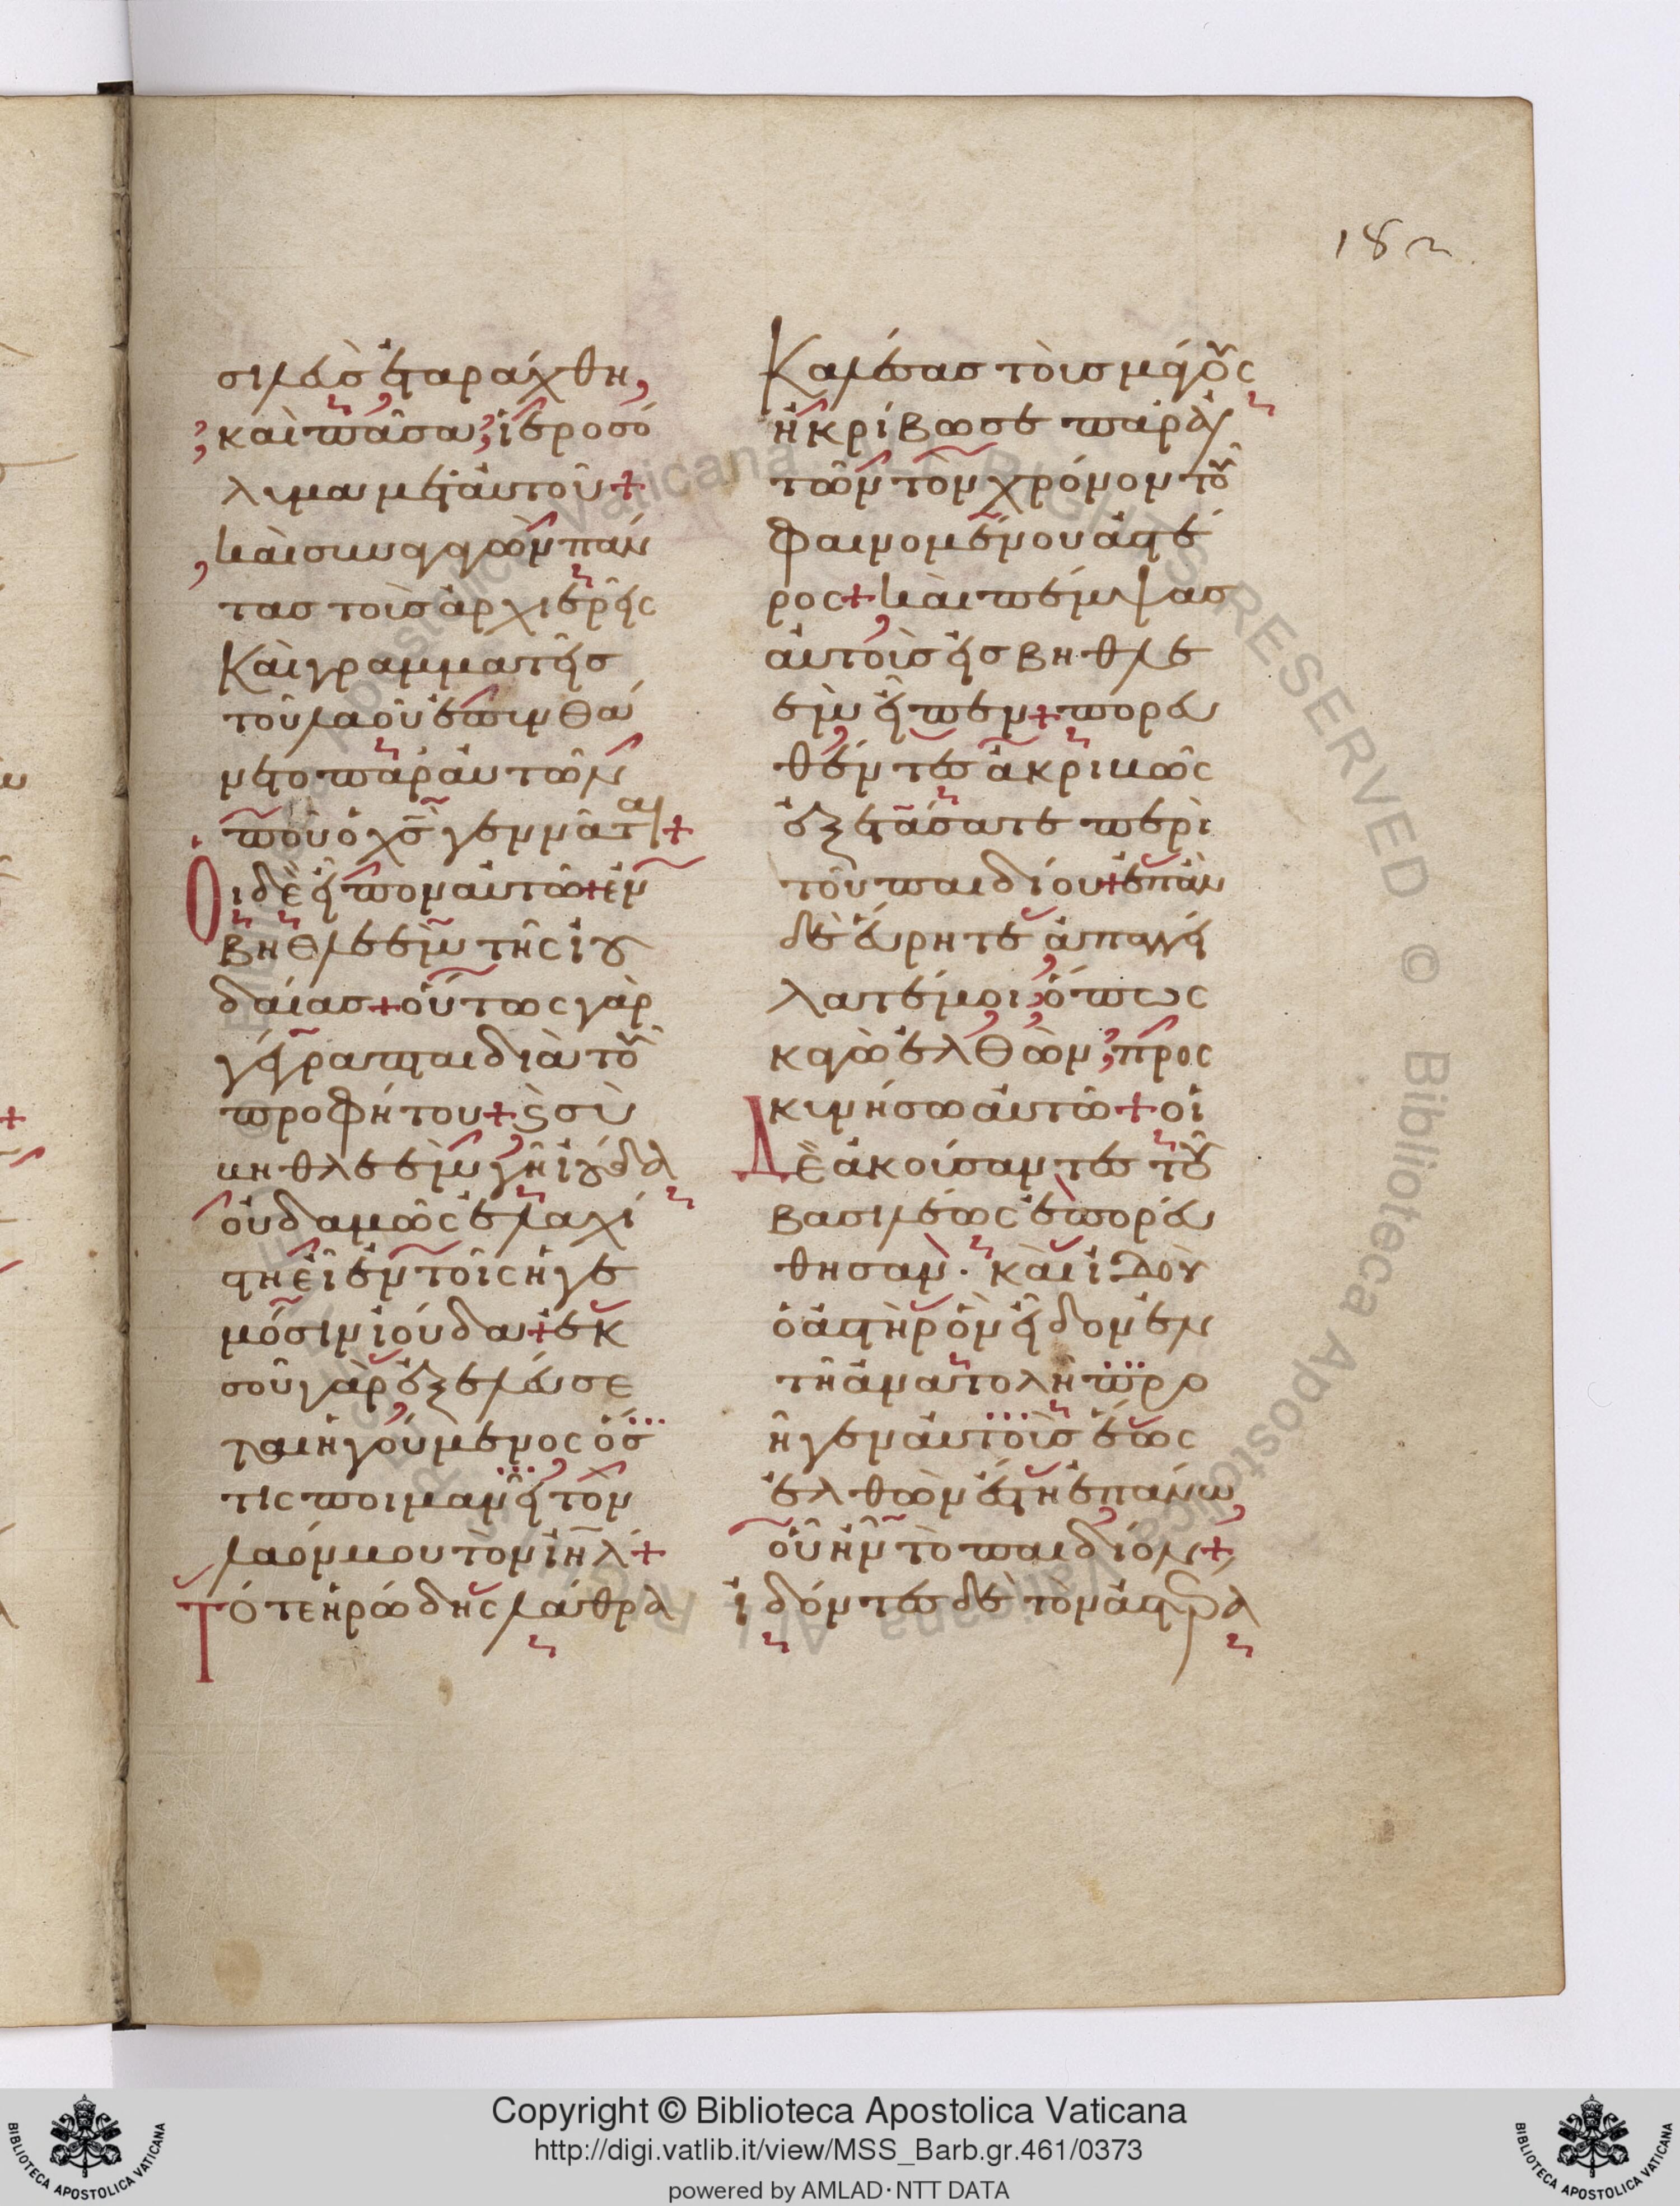 182
σιλεὺς ἐταράχθη,
καὶ πᾶσα ἱεροσό
λυμα μετ αὐτοῦ+
καὶ συναγαγὼν πάν
τας τοὺς ἀρχιερεῖς
Καὶ γραμματεῖς
τοῦ λαοῦ ἐπυνθά
νετο παρ αὐτῶν
ποῦ ὁ χς γεννᾶται+
Οἱ δὲ εἶπον αὐτῶ+ἐν
βηθλεεὶμ τῆς ἰου
δαίας+οὕτως γὰρ
γέγραπται διὰ τοῦ
προφήτου+ς σὺ
βηθλεεὶμ γῆ ἰούδα
οὐδαμῶς ἐλαχί
στη εἶ ἐν τοῖς ἡγε
μόσιν ἰούδα+ἐκ
σοῦ γὰρ ἐξελεύσε
ται ἡγούμενος ὅσ
τις ποιμανεῖ τὸν
λαόν μου τὸν ιηλ+
Τότε ἡρώδης λάθρα
Καλέσας τοὺς μάγους
ἠκρίβωσε παρ αὐ
τῶν τὸν χρόνον τοῦ
φαινομένου ἀστέ
ρος+καὶ πέμψας
αὐτοὺς εἰς βηθλε
εὶμ εἶπεν+πορευ
θέντες ἀκριβῶς
ἐξετάσατε περὶ
τοῦ παιδίου+ἐπὰν
δὲ εὕρητε ἀπαγγεί
λατέ μοι ὅπως
κἀγὼ ἐλθὼν προσ
κυνήσω αὐτῶ+οἱ
Δὲ ἀκούσαντες τοῦ
βασιλέως ἐπορεύ
θησαν. καὶ ἰδοὺ
ὁ ἀστὴρ ὃν εἶδον ἐν
τῆ ἀνατολῆ προ
ῆγεν αὐτοὺς ἕως
ἐλθὼν ἔστη ἐπάνω
οὗ ἦν τὸ παιδίον+
ἰδόντες δὲ τὸν ἀστέρα
BIBLIOTECA APOSTOLICA VATICANA
Copyright © Biblioteca Apostolica Vaticana
http://digi.vatlib.it/view/MSS_Barb.gr.461/0373
powered by AMLAD·NTT DATA
BIBLIOTECA APOSTOLICA VATICANA